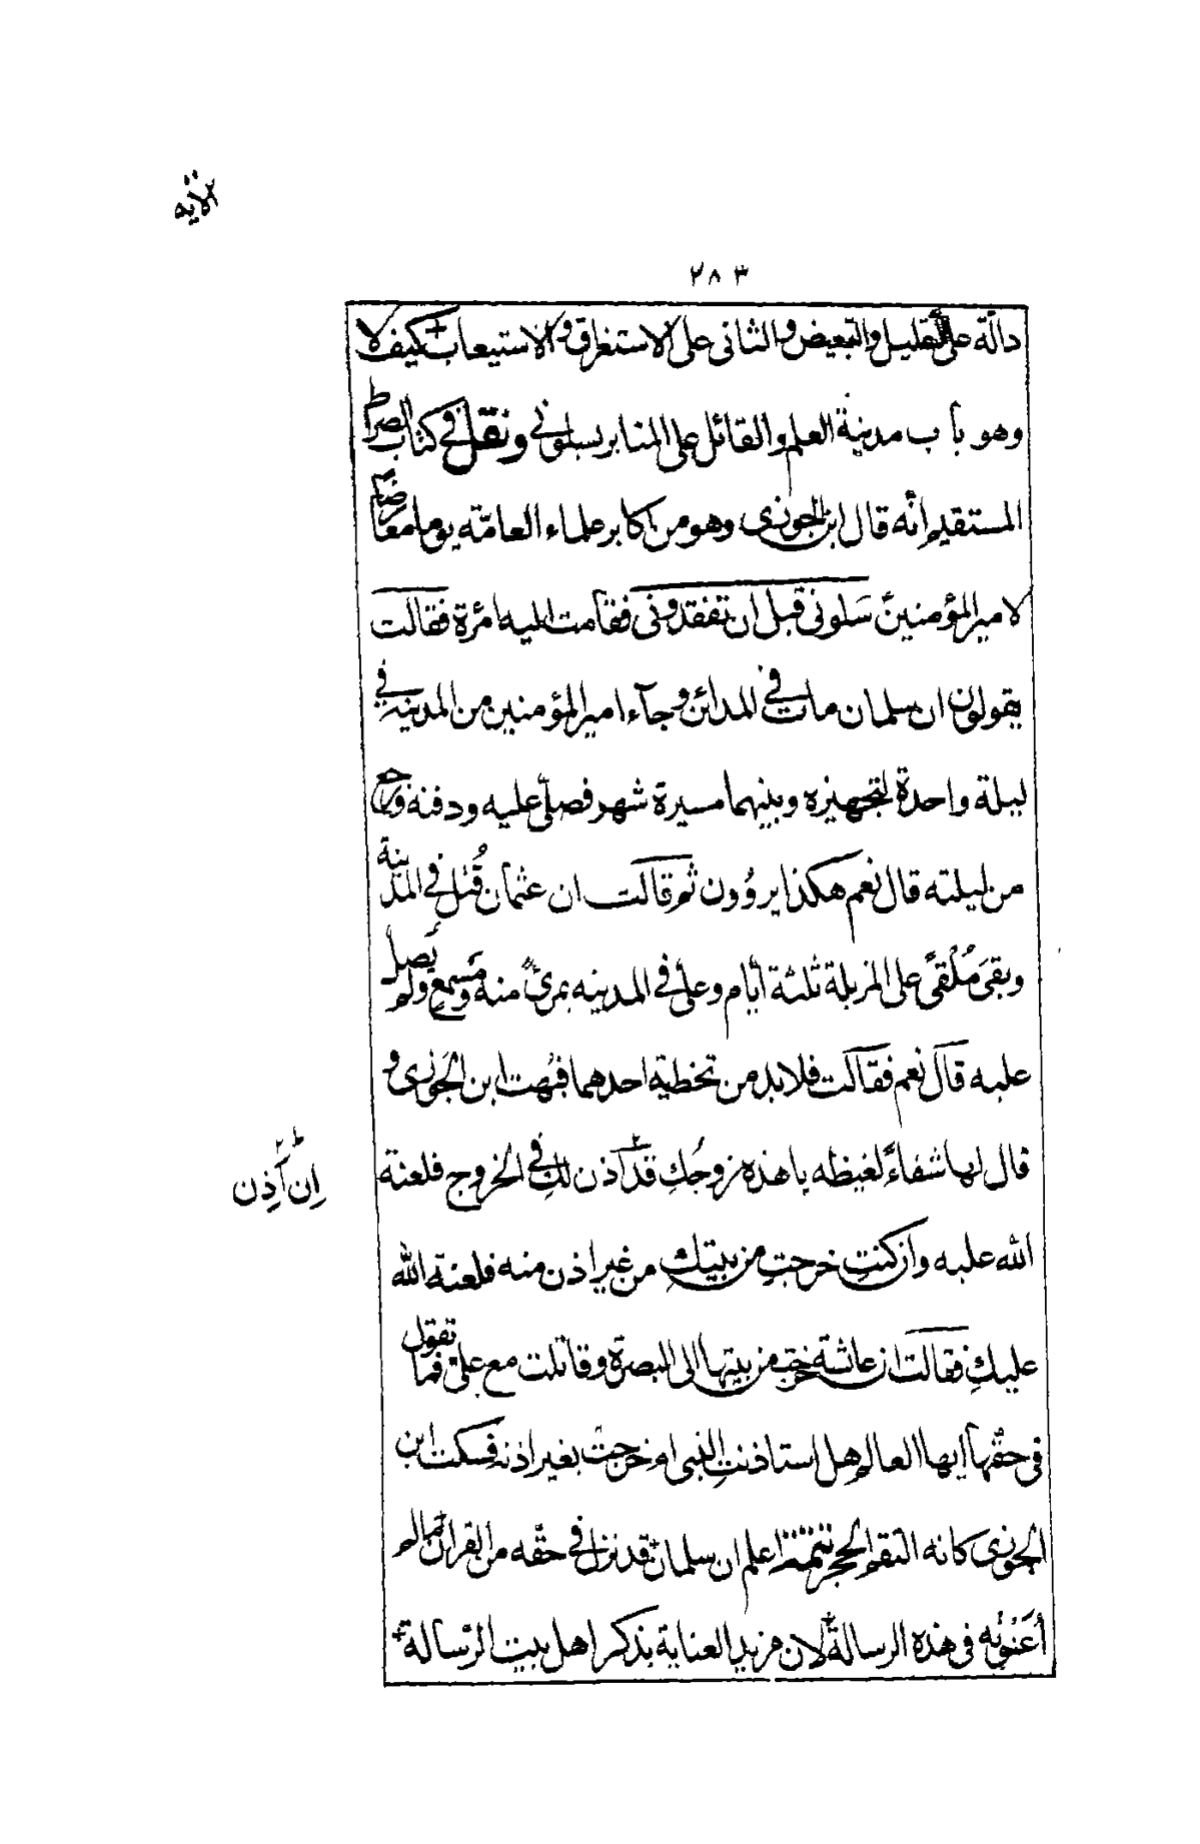 الآية
٢٨٣
دالّة على التقليل والتبعيض والثانى على الاستغراق والاستيعاب كيف لا
وهو باب مدينة العلم والقائل على المنابر سلونى ونقل فى كتاب الصراط
المستقيم انّه قال ابن الجوزى وهو من اكابر علماء العامّة يوما معارضا
لامير المؤمنين سَلونى قبل ان تفقدونى فقامت اليه امرئة فقالت
يقولون ان سلمان مات فى المدائن وجآء امير المؤمنين من المدينه فى
ليلة واحدة لتجهيزه وبينهما مسيرة شهر فصلّى عليه ودفنه ورجع
من ليلته قال نعم هكذا يروُون ثم قالت ان عثمان قُتل فى المدينة
وبقىَ مُلْقىً على المزبلة ثلثة أيّام وعلى فى المدينه بمرئً منه ومَسمع ولم يُصلّ
عليه قال نعم فقالت فلابد من تخطية احدهما فبُهت ابن الجَوزى و
قال لها شفاءً لغيظه يا هذه زوجُكِ قد اذن لكِ فى الخروج فلعنة
ان اَذِن
الله عليه وان كنتِ خرجتِ من بيتكِ من غير اذن منه فلعنة الله
عليكِ فقالت ان عائشة خرجت من بيتها الى البصرة وقاتلت مع على فما تقول
فى حقّها ايها العالم هل استاذنت النبى ام خرجت بغير اذنه فسكت ابن
الجوزى كانه التقم الحجر تتمّة اعلم ان سلمان قد نزل فى حقّه من القران ما لم
أعَنْوُنه فى هذه الرسالة لان مزيد العناية بذكر اهل بيت الرّسالة